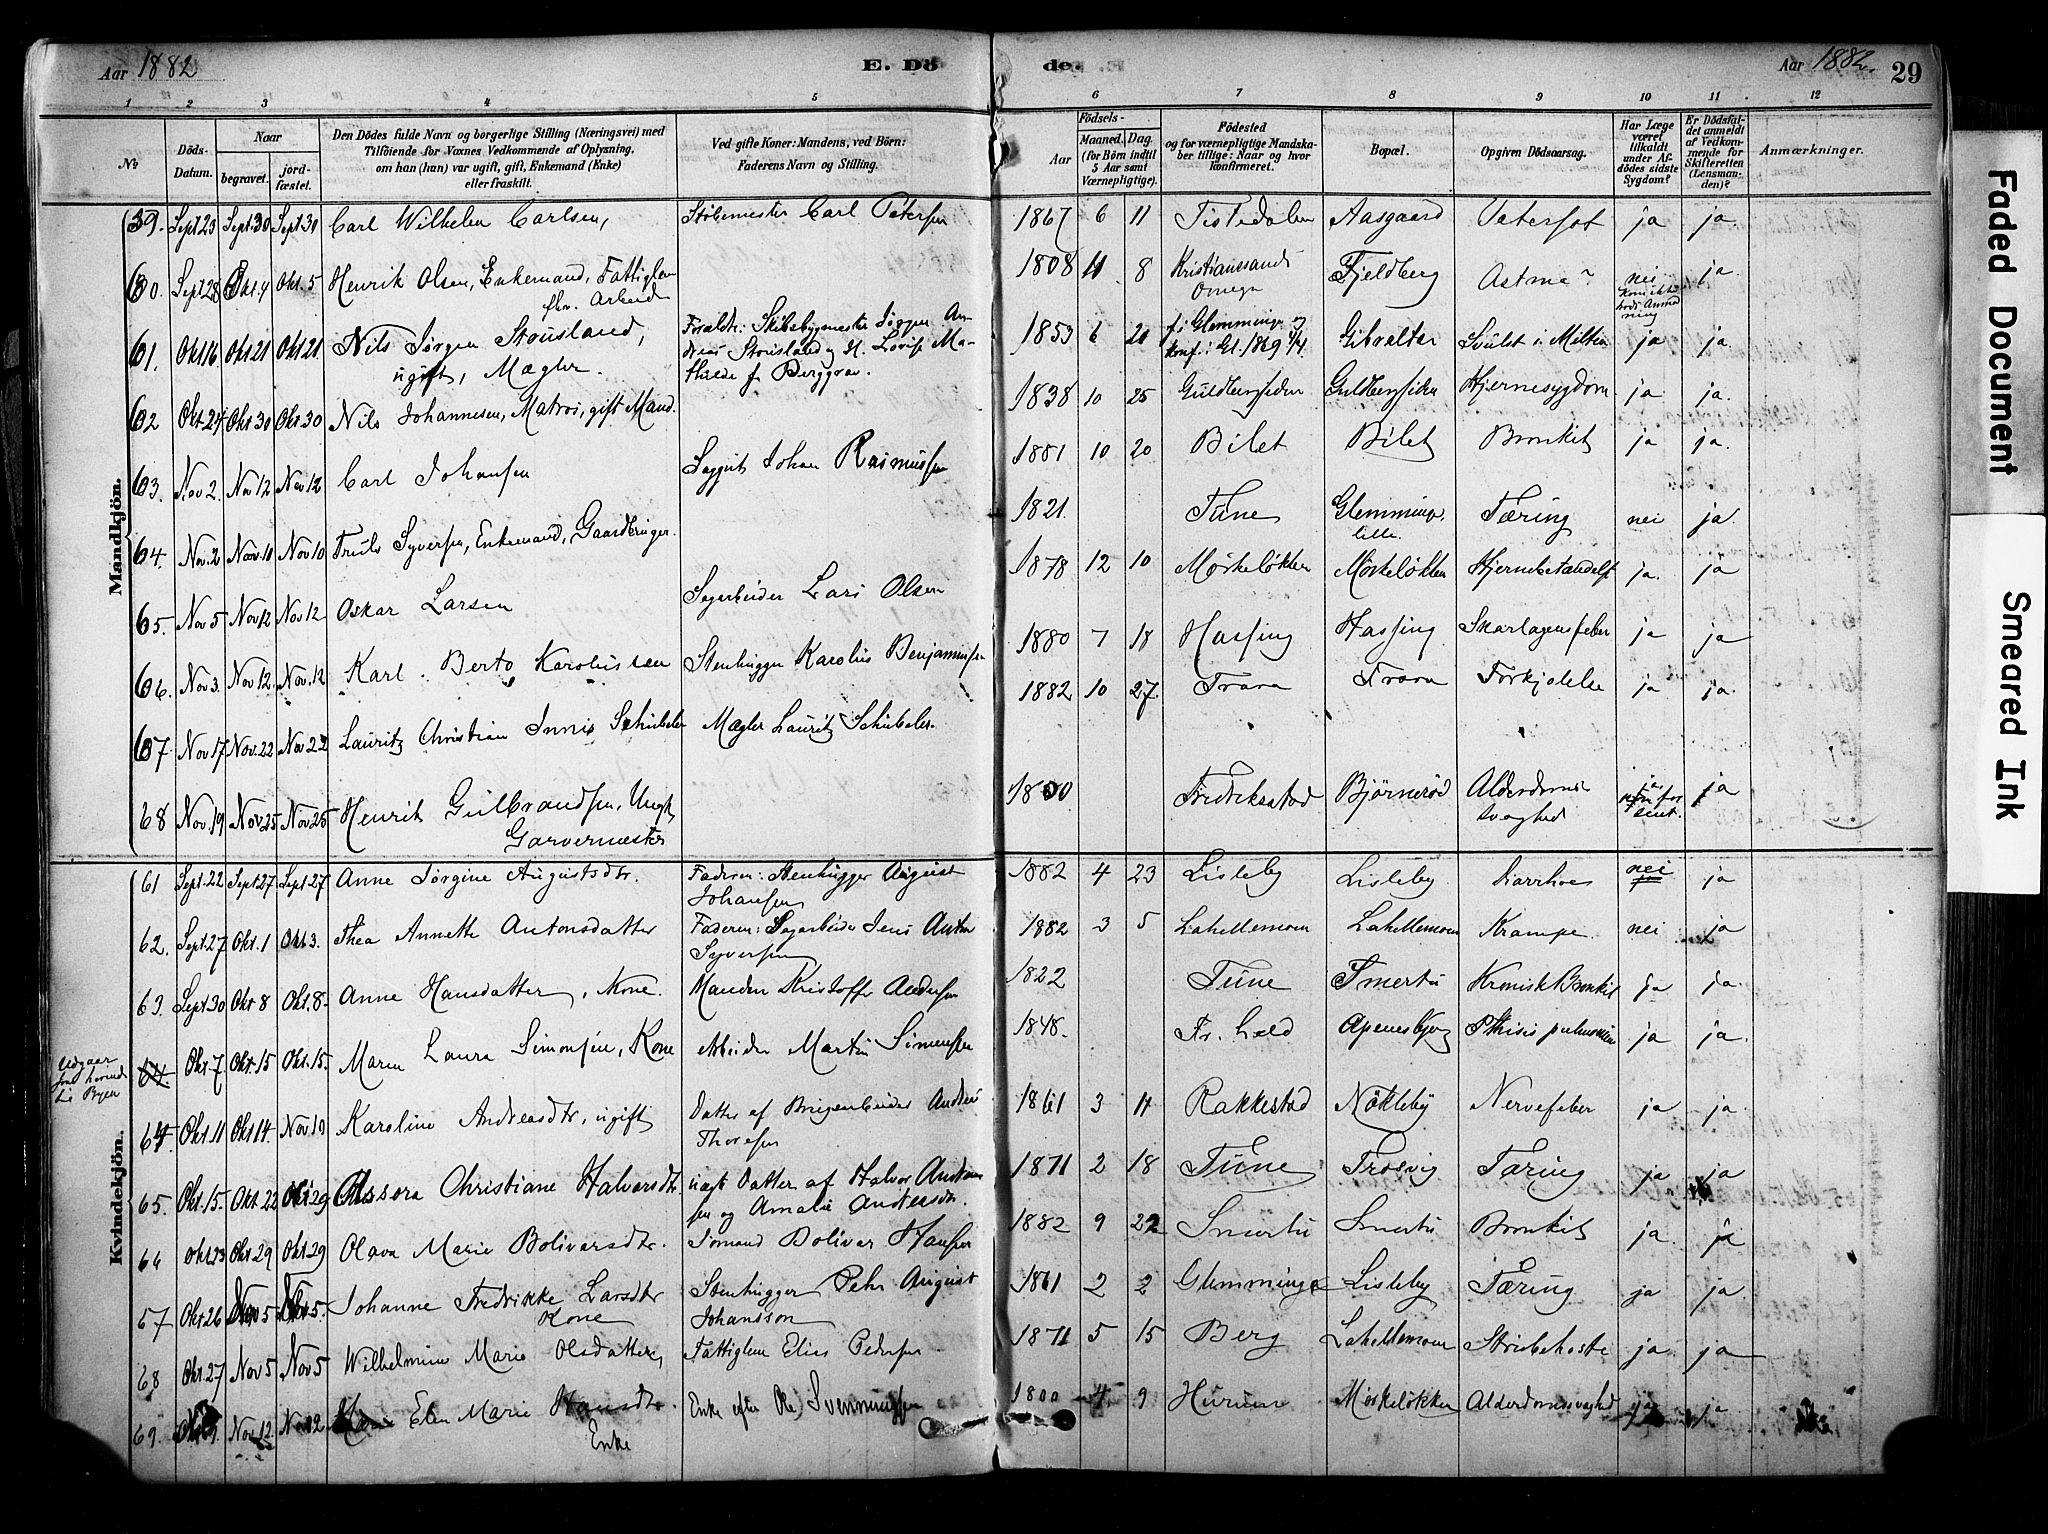 Aar 1882 E. Dö de. Aar 1882. 29
1 2 3 4 5 6 7 8 9 10 11 12
No
Döds-Datum.
Naar
begravet.
jordfæstet.
Den Dödes fulde Navn og borgerlige Stilling (Næringsvei) med
Tilföiende for Voxnes Vedkommende af Oplysning,
om han (hun) var ugift, gift, Enkemand (Enke)
eller fraskilt.
Ved gifte Koner: Mandens, ved Börn:
Faderens Navn og Stilling.
Födsels-
Aar
Maaned. Dag.
(for Börn indtil
5 Aar samt
Værnepligtige).
Födested
og for værnepligtige Mandska-
ber tillige: Naar og hvor
konfirmeret.
Bopæl.
Opgiven Dödsaarsag.
Har Læge
været
tilkaldt
under Af-
dödes sidste
Sygdom?
Er Dödsfal-
det anmeldt
af Vedkom-
mende for
Skifteretten
(Lensman-
den)?
Anmærkninger.
Mandkjön.
59. Sept 23 Sept 30 Sept 30 Carl Wilhelm Carlsen, Støbemester Carl Petersen 1867 6 11 Tistedalen Aasgaard Vatersot ja ja.
60. Sept 28 Okt. 4 Okt. 5 Henrik Olsen, Enkemand, Fattiglem 1808 11 8 Kristianssands Fjeldberg Astma nei ja.
Arbeid Omegn
61. Okt 16 Okt 21 Okt 21. Nils Jørgen Strusland, Forældr: Skibsbygmester Jørgen An- 1853 6 21 f. i Glemminge og Gibraltar Svulst i Milten ja ja.
ugift, Mægler. dreas Strusland og H. Lovise Ma- konf. i Gl. 1869
thilde f. Berggrav.
62 Okt. 24 Okt 30 Okt 30 Nils Johannesen, Matros, gift Mand. 1838 10 25 Guldbergsiden Guldbergsiden Hjernesygdom ja ja.
63. Nov 2. Nov 12 Nov 12 Carl Johansen Johan Rasmussen 1881 10 20 Bilet Bilet Bronkit ja ja.
64. Nov. 2 Nov. 10 Nov 10 Truls Syversen, Enkemand, Gaardbruger. 1821. Tune Glemminge, Tæring nei ja.
lille.
65. Nov 5 Nov 12 Nov 12 Oskar Larsen Sagarbeider Lars Olsen 1878 12 10 Mørkeløkken Mørkeløkken Hjernebetændelse ja. ja
66. Nov 3. Nov 12. Nov. 12 Karl Berto Karoliussen Stenhugger Karolius Benjaminsen 1880 7 18 Hassing Hassing Skarlagensfeber ja ja
67. Nov 17 Nov. 22 Nov 22 Lauritz Christian Innis Schübeler Mægler Lauritz Schübeler. 1882 10 27. Trara Trara Forkjølelse ja ja.
68 Nov 19 Nov 25 Nov 25 Henrik Gulbrandsen, Ungk. 1800 Fredrikstad Bjørnerød Alderdoms- ja
Garvermester svaghed
Kvindekjön.
61 Sept. 22 Sept 27 Sept 27 Anne Jørgine Augustsdtr. Faderen: Stenhugger August 1882 4 23 Lisleby Lisleby Diarrhoe nei ja
Johansen
62. Sept. 27 Okt. 1 Okt 3. Thea Annette Antonsdatter Faderen: Sagarbeider Jens Anton 1882 3 5 Lahellemoen Lahellemoen Krampe. nei ja
Syversen
63. Sept 30 Okt 8 Okt. 8. Anne Hansdatter, Kone. Manden Kristoffer Andersen 1822 Tune Smertu Kronisk Bronkit ja ja.
Udgaar
Byen
64. Okt. 7 Okt. 15 Okt. 15. Maren Laura Simonsen, Kone Arbeider Martin Simensen 1848. Fr. hald Apenesbjerg Phtisis pulmonum ja ja.
64. Okt. 11 Okt 14. Nov 10 Karoline Andreasdtr, ugift Datter af Brugarbeider Andreas 1861 3 11 Rakkestad Nökleby Nervefeber ja ja.
Thoresen
65. Okt. 15. Okt 22 Okt 29 Assora Christiane Halvorsdtr. uægt Datter af Halvor Andersen 1871 2 18 Tune Trosvig Tæring ja ja
og Amalie Andreasdtr.
66 Okt. 23 Okt 29 Okt 29 Olava Marie Bolivarsdtr. Sömand Bolivar Hansen 1882 9 22 Smertu Smertu Bronkit ja. ja
67 Okt 26 Nov 5 Nov 5. Johanne Fredrikke Larsdtr Stenhugger Pehr August 1861 2 2 Glemminge Lisleby Tæring ja ja
Kone Johansson
68 Okt. 27 Nov 5 Nov 5 Wilhelmine Marie Olsdatter, Fattiglem Elias Pedersen 1871 5 15 Berg Lahellemoen Strubehoste ja. ja
69. Nov 12. Nov 12 Elen Marie Hansdtr. Enke efter Ole Svenningsen 1800 4 9 Hurum Mørkeløkken Alderdomssvaghed ja ja
Enke
Faded Document
Smeared Ink